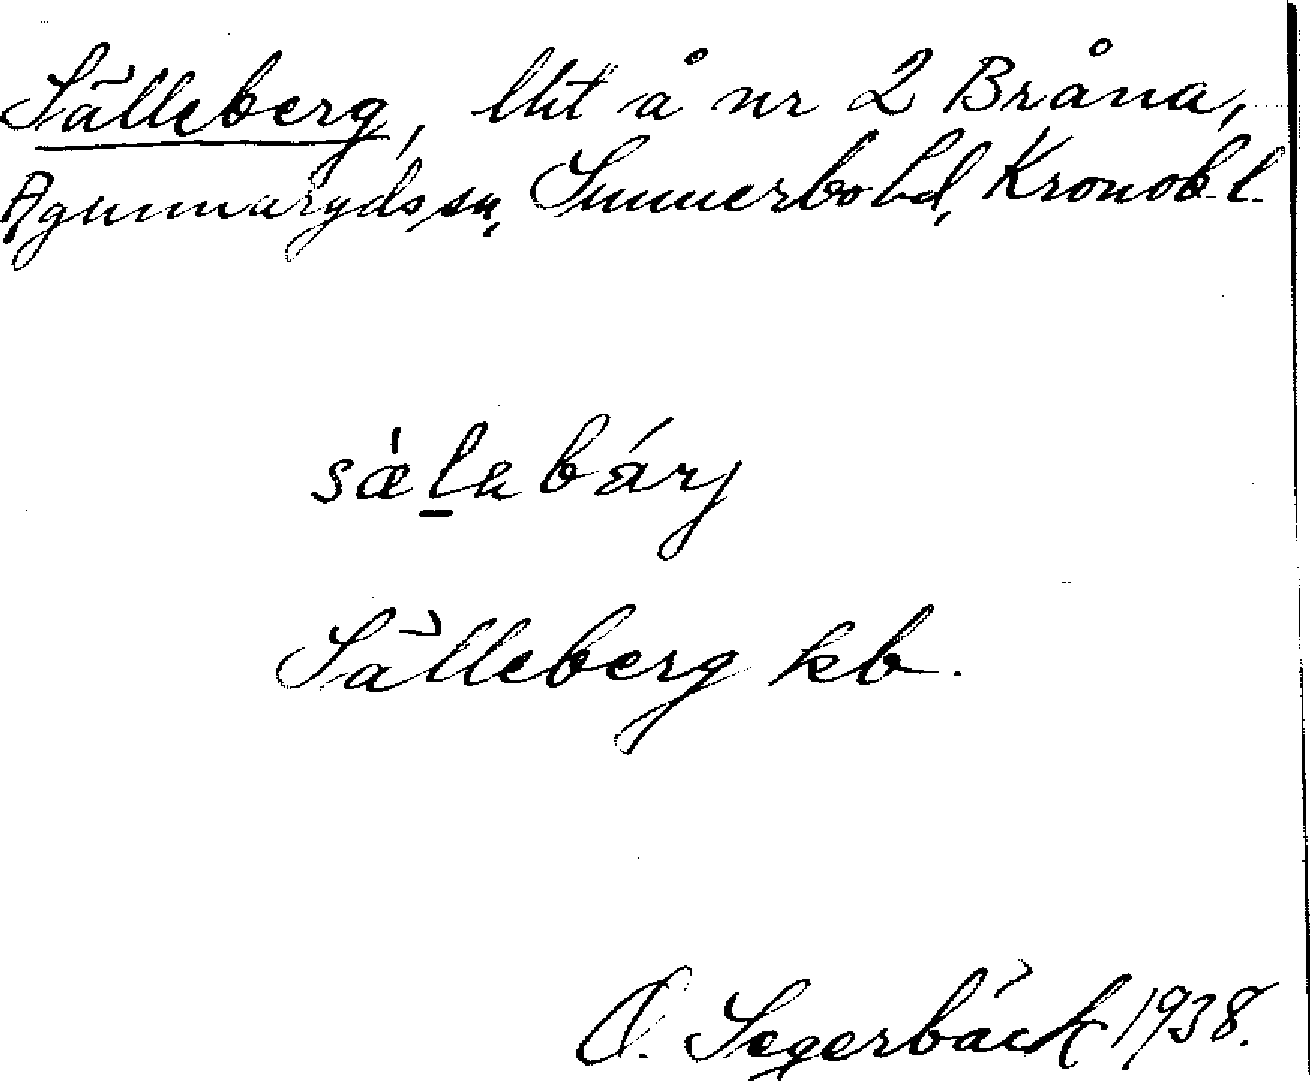 Sälleberg, lht å nr 2 Bråna,
Agunnaryds sn, Sunnerbo hd, Kronob. l.
sæ̀labárj
Sälleberg kb.
O. Segerbäck 1938.